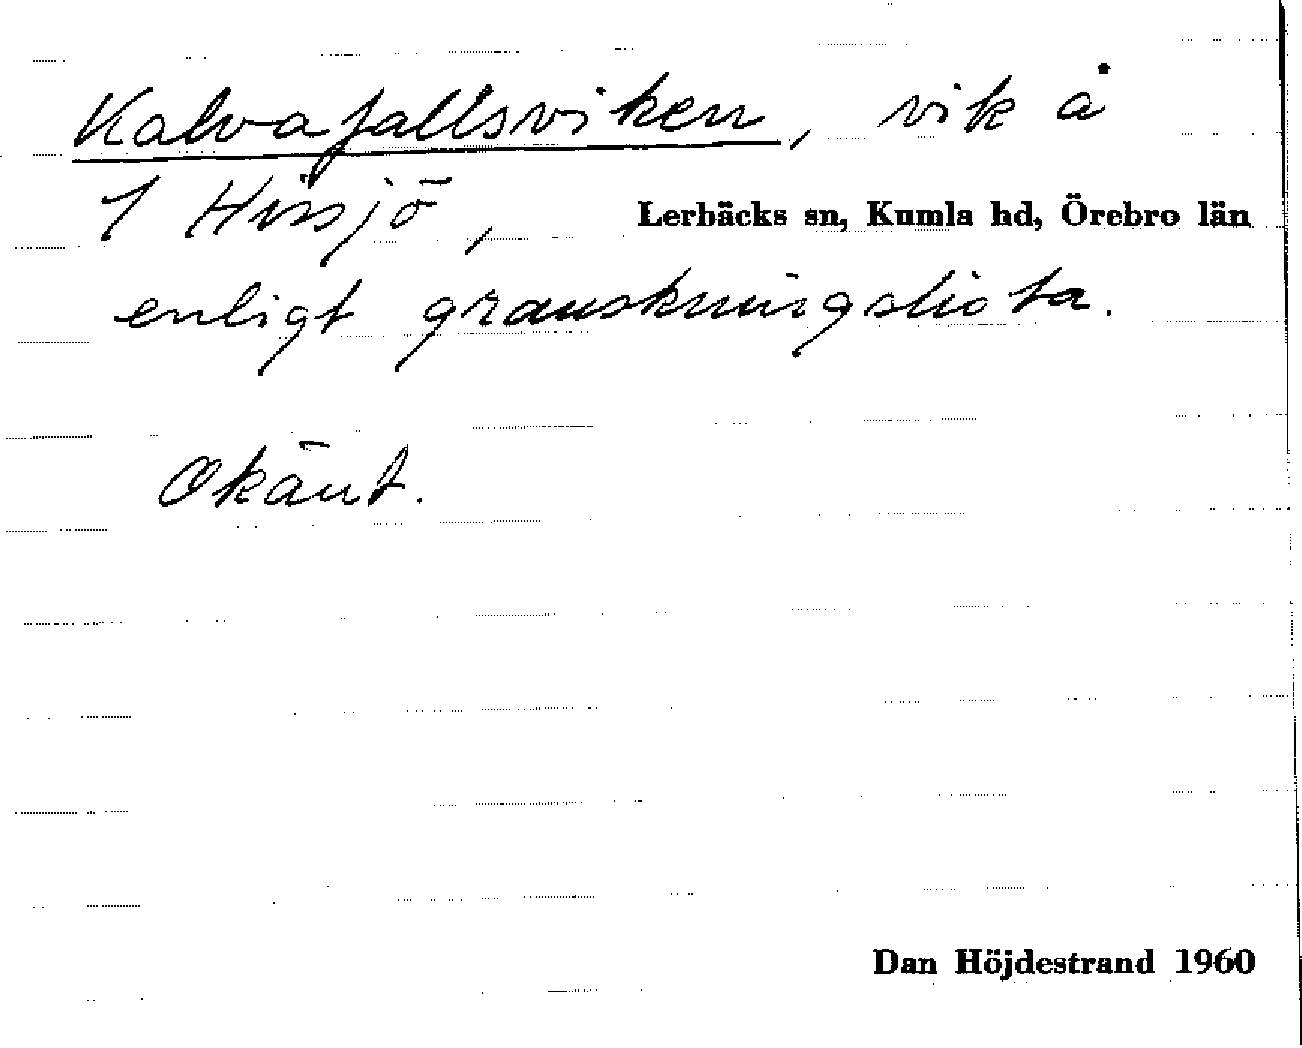 Kalvafallsviken, vik å
1 Hissjö,
Lerbäcks sn, Kumla hd, Örebro län
enligt granskningslista.
Okänt.
Dan Höjdestrand 1960